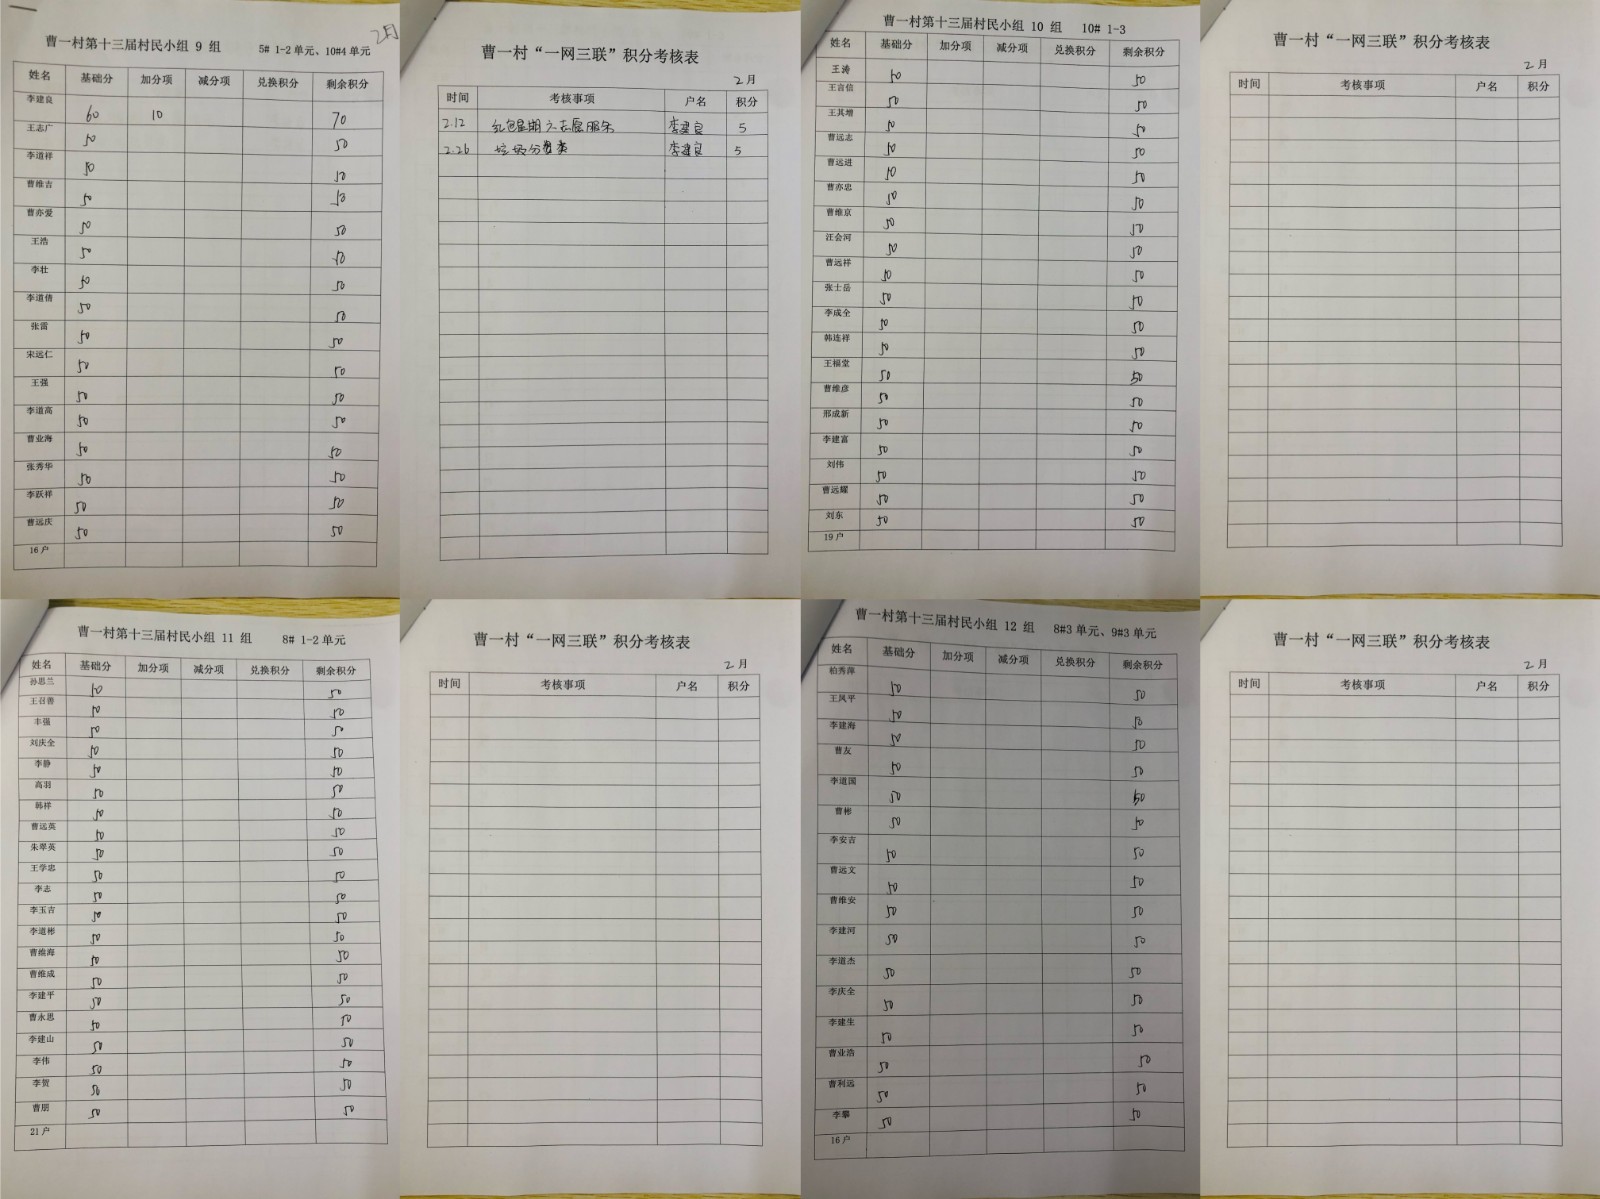 2月
曹一村第十三届村民小组 9 组 5# 1-2单元、10#4单元
姓名 基础分 加分项 减分项 兑换积分 剩余积分
李建良 60 10 70
王志广 50 50
李道祥 50 50
曹维吉 50 50
曹亦爱 50 50
王浩 50 50
李壮 50 50
李道倩 50 50
张雷 50 50
宋远仁 50 50
王强 50 50
李道高 50 50
曹业海 50 50
张秀华 50 50
李跃祥 50 50
曹远庆 50 50
16户
曹一村“一网三联”积分考核表
2月
时间 考核事项 户名 积分
2.12 红色星期六志愿服务 李建良 5
2.26 垃圾分类 李建良 5
曹一村第十三届村民小组 10 组 10# 1-3
姓名 基础分 加分项 减分项 兑换积分 剩余积分
王涛 50 50
王言信 50 50
王其增 50 50
曹远志 50 50
曹远进 50 50
曹亦忠 50 50
曹维京 50 50
汪会河 50 50
曹远祥 50 50
张士岳 50 50
李成全 50 50
韩连祥 50 50
王福堂 50 50
曹维彦 50 50
邢成新 50 50
李建富 50 50
刘伟 50 50
曹远耀 50 50
刘东 50 50
19户
曹一村“一网三联”积分考核表
2月
时间 考核事项 户名 积分
曹一村第十三届村民小组 11 组 8# 1-2单元
姓名 基础分 加分项 减分项 兑换积分 剩余积分
孙思兰 50 50
王召善 50 50
丰强 50 50
刘庆全 50 50
李静 50 50
高羽 50 50
韩样 50 50
曹远英 50 50
朱翠英 50 50
王学忠 50 50
李志 50 50
李玉吉 50 50
李道彬 50 50
曹维海 50 50
曹维成 50 50
李建平 50 50
曹永思 50 50
李建山 50 50
李伟 50 50
李贺 50 50
曹朋 50 50
21户
曹一村“一网三联”积分考核表
2月
时间 考核事项 户名 积分
曹一村第十三届村民小组 12 组 8#3单元、9#3单元
姓名 基础分 加分项 减分项 兑换积分 剩余积分
柏秀萍 50 50
王凤平 50 50
李建海 50 50
曹友 50 50
李道国 50 50
曹彬 50 50
李安吉 50 50
曹远文 50 50
曹维安 50 50
李建河 50 50
李道杰 50 50
李庆全 50 50
李建生 50 50
曹业浩 50 50
曹利远 50 50
李攀 50 50
16户
曹一村“一网三联”积分考核表
2月
时间 考核事项 户名 积分